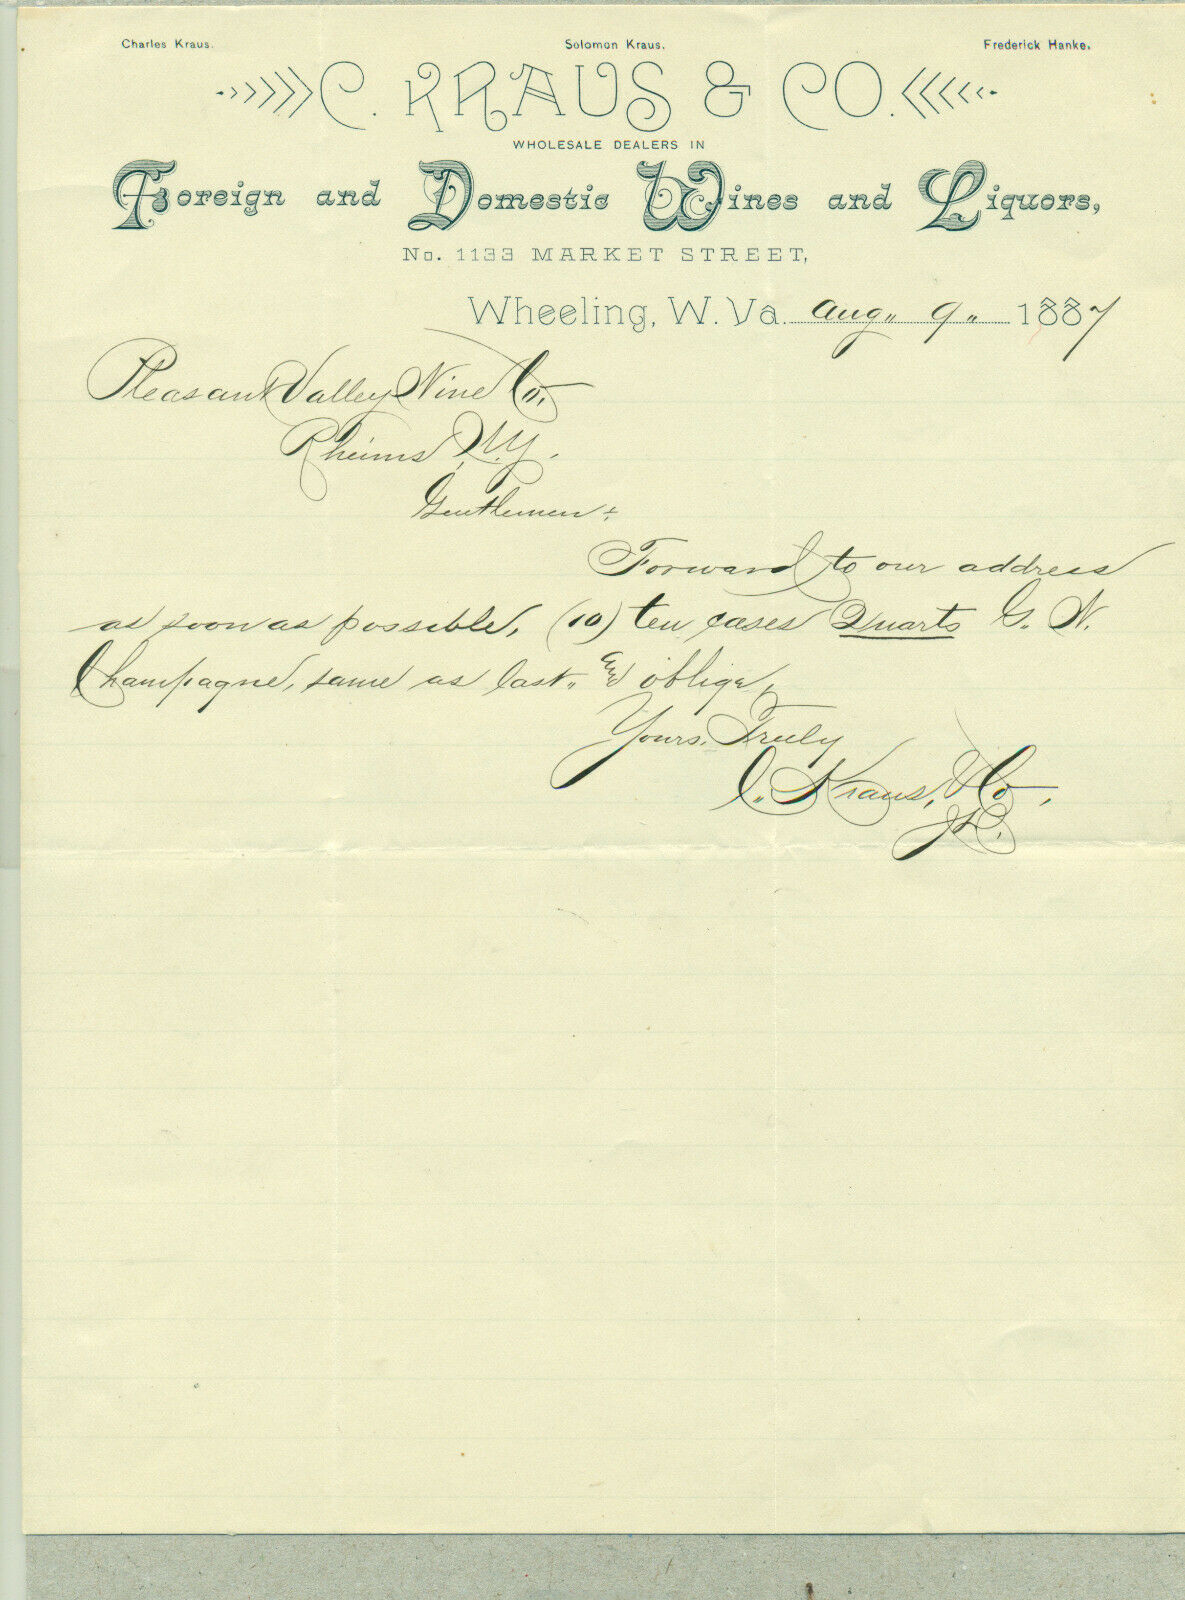 Charles Kraus. Solomon Kraus. Frederick Hanke.
C. KRAUS & CO.
WHOLESALE DEALERS IN
Foreign and Domestic Wines and Liquors,
No. 1133 MARKET STREET,
Wheeling, W. Va. Aug" 9" 1887
Pleasant Valley Wine Co,
Rheims, N.Y.
Gentlemen:
Forward to our address
as soon as possible, (10) ten cases Quarts G. W.
Champagne, same as last" and oblige,
Yours, Truly
C" Kraus, & Co,